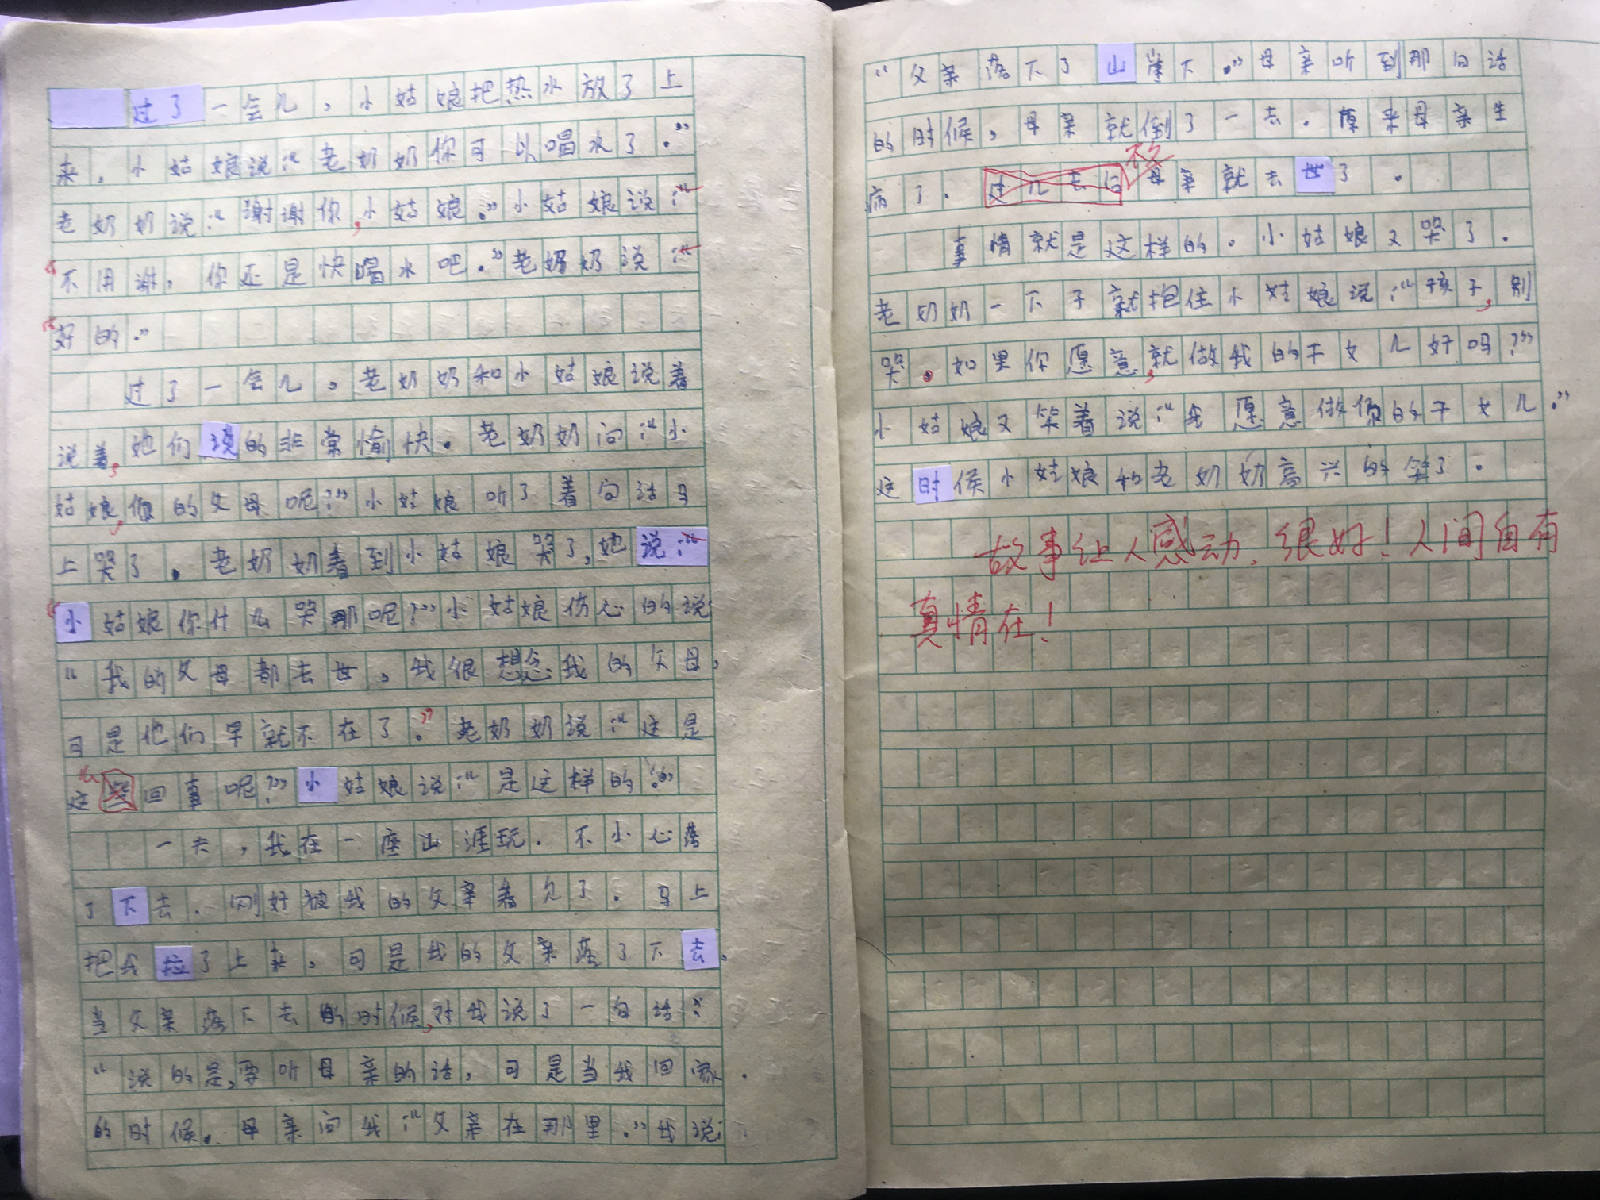 过了一会儿，小姑娘把热水放了上
来，小姑娘说：“老奶奶你可以喝水了。”
老奶奶说：“谢谢你，小姑娘。”小姑娘说：
“不用谢，你还是快喝水吧。”老奶奶说：
“好的。”
过了一会儿，老奶奶和小姑娘说着
说着，她们说的非常愉快。老奶奶问：“小
姑娘，你的父母呢？”小姑娘听了着句话马
上哭了。老奶奶看到小姑娘哭了，她说：
“小姑娘你什么哭那呢？”小姑娘伤心的说
“我的父母都去世，我很想念我的父母，
可是他们早就不在了。”老奶奶说：“这是
这回事呢？”小姑娘说：“是这样的：”
一天，我在一座山涯玩．不小心落
了下去．刚好被我的父亲看见了．马上
把我拉了上来，可是我的父亲落了下去．
当父亲落下去的时候，对我说了一句话：
“说的是，要听母亲的话，可是当我回家．
的时候．母亲问我：“父亲在那里．”我说：
“父亲落下了山崖下．”母亲听到那句话
的时候，母亲就倒了一去．原来母亲生
病了．不久母亲就去世了．
事情就是这样的．小姑娘又哭了．
老奶奶一下子就抱住小姑娘说：“孩子，别
哭。如果你愿意，就做我的干女儿好吗？”
小姑娘又笑着说：“我愿意做你的干女儿．”
这时候小姑娘和老奶奶高兴的笑了．
故事让人感动，很好！人间自有
真情在！